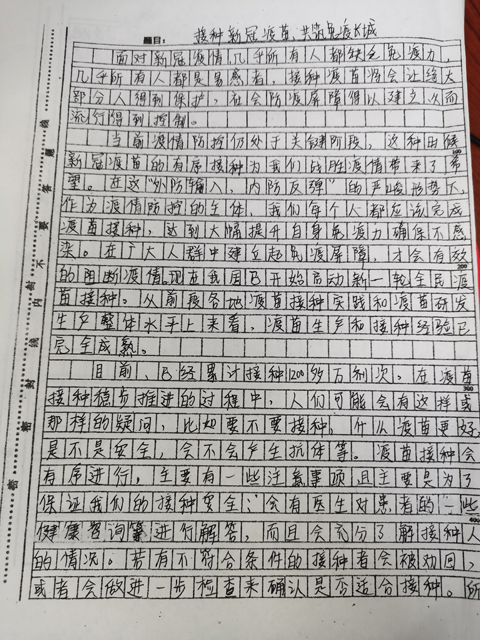 题目：接种新冠疫苗，共筑免疫长城
面对新冠疫情几乎所有人都缺乏免疫力，
几乎所有人都是易感者，接种疫苗源会让绝大
部分人得到保护，社会防疫屏障得以建立从而
流行得到控制。
当前疫情防控仍处于关键阶段，这种时候
新冠疫苗的有序接种为我们战胜疫情带来了希
望。在这“外防输入，内防反弹”的严峻形势下，
作为疫情防控的主体，我们每个人都应该完成
疫苗接种，达到大幅提升自身免疫力确保不感
染。在广大人群中建立起免疫屏障，才会有效
的阻断疫情。现在我国已开始启动新一轮全民疫
苗接种。从前段各地疫苗接种实践和疫苗研发
生产整体水平上来看，疫苗生产和接种经验已
完全成熟。
目前，已经累计接种1200多万剂次。在疫苗
接种稳步推进的过程中，人们可能会有这样或
那样的疑问，比如要不要接种，什么疫苗更好，
是不是安全，会不会产生抗体等。疫苗接种会
有序进行，主要有一些注意事项且主要是为了
保证我们的接种安全；会有医生对患者的一些
健康咨询等进行解答，而且会充分了解接种人
的情况。若有不符合条件的接种者会被劝回，
或者会做进一步检查来确认是否适合接种。所
密
封
线
内
不
要
答
题